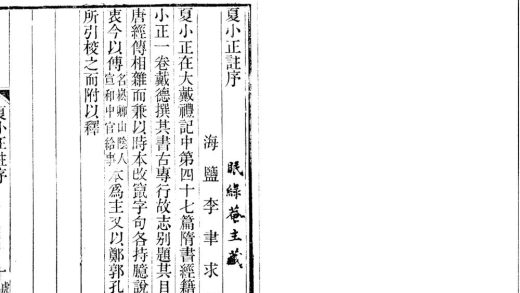 夏小正註序
眠綠菴主藏
海鹽李聿求
夏小正在大戴禮記中第四十七篇隋書經籍
小正一卷戴德撰其書古專行故志别題其目
唐經傳相雜而兼以時本改竄字句各持臆說
衷今以傅名崧卿山陰人宣和中官給事本爲主又以鄭郭孔
所引校之而附以釋
夏小正註序